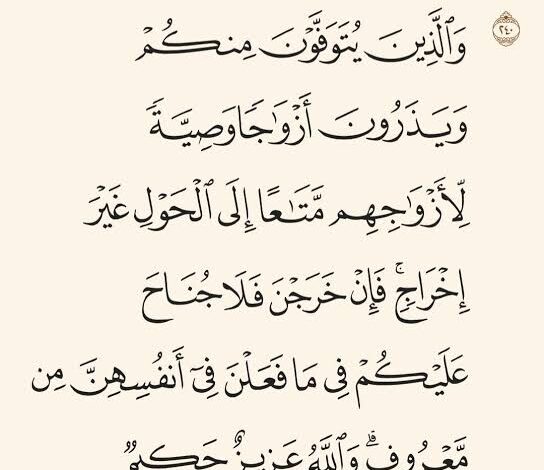 ٢٤٠
وَٱلَّذِينَ يُتَوَفَّوْنَ مِنكُمْ
وَيَذَرُونَ أَزْوَٰجًا وَصِيَّةً
لِّأَزْوَٰجِهِم مَّتَـٰعًا إِلَى ٱلْحَوْلِ غَيْرَ
إِخْرَاجٍۚ فَإِنْ خَرَجْنَ فَلَا جُنَاحَ
عَلَيْكُمْ فِى مَا فَعَلْنَ فِىٓ أَنفُسِهِنَّ مِن
مَّعْرُوفٍۗ وَٱللَّهُ عَزِيزٌ حَكِيمٌ